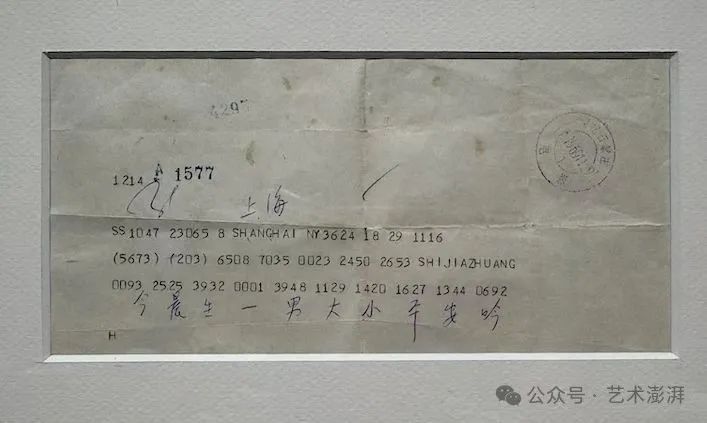 4297
1214 1577
上海
SS1047 23065 8 SHANGHAI NY3624 18 29 1116
(5673) (203) 6508 7035 0023 2450 2653 SHIJIAZHUANG
0093 2525 3932 0001 3948 1129 1420 1627 1344 0692
今晨生一男大小平安吟
H
公众号·艺术澎湃